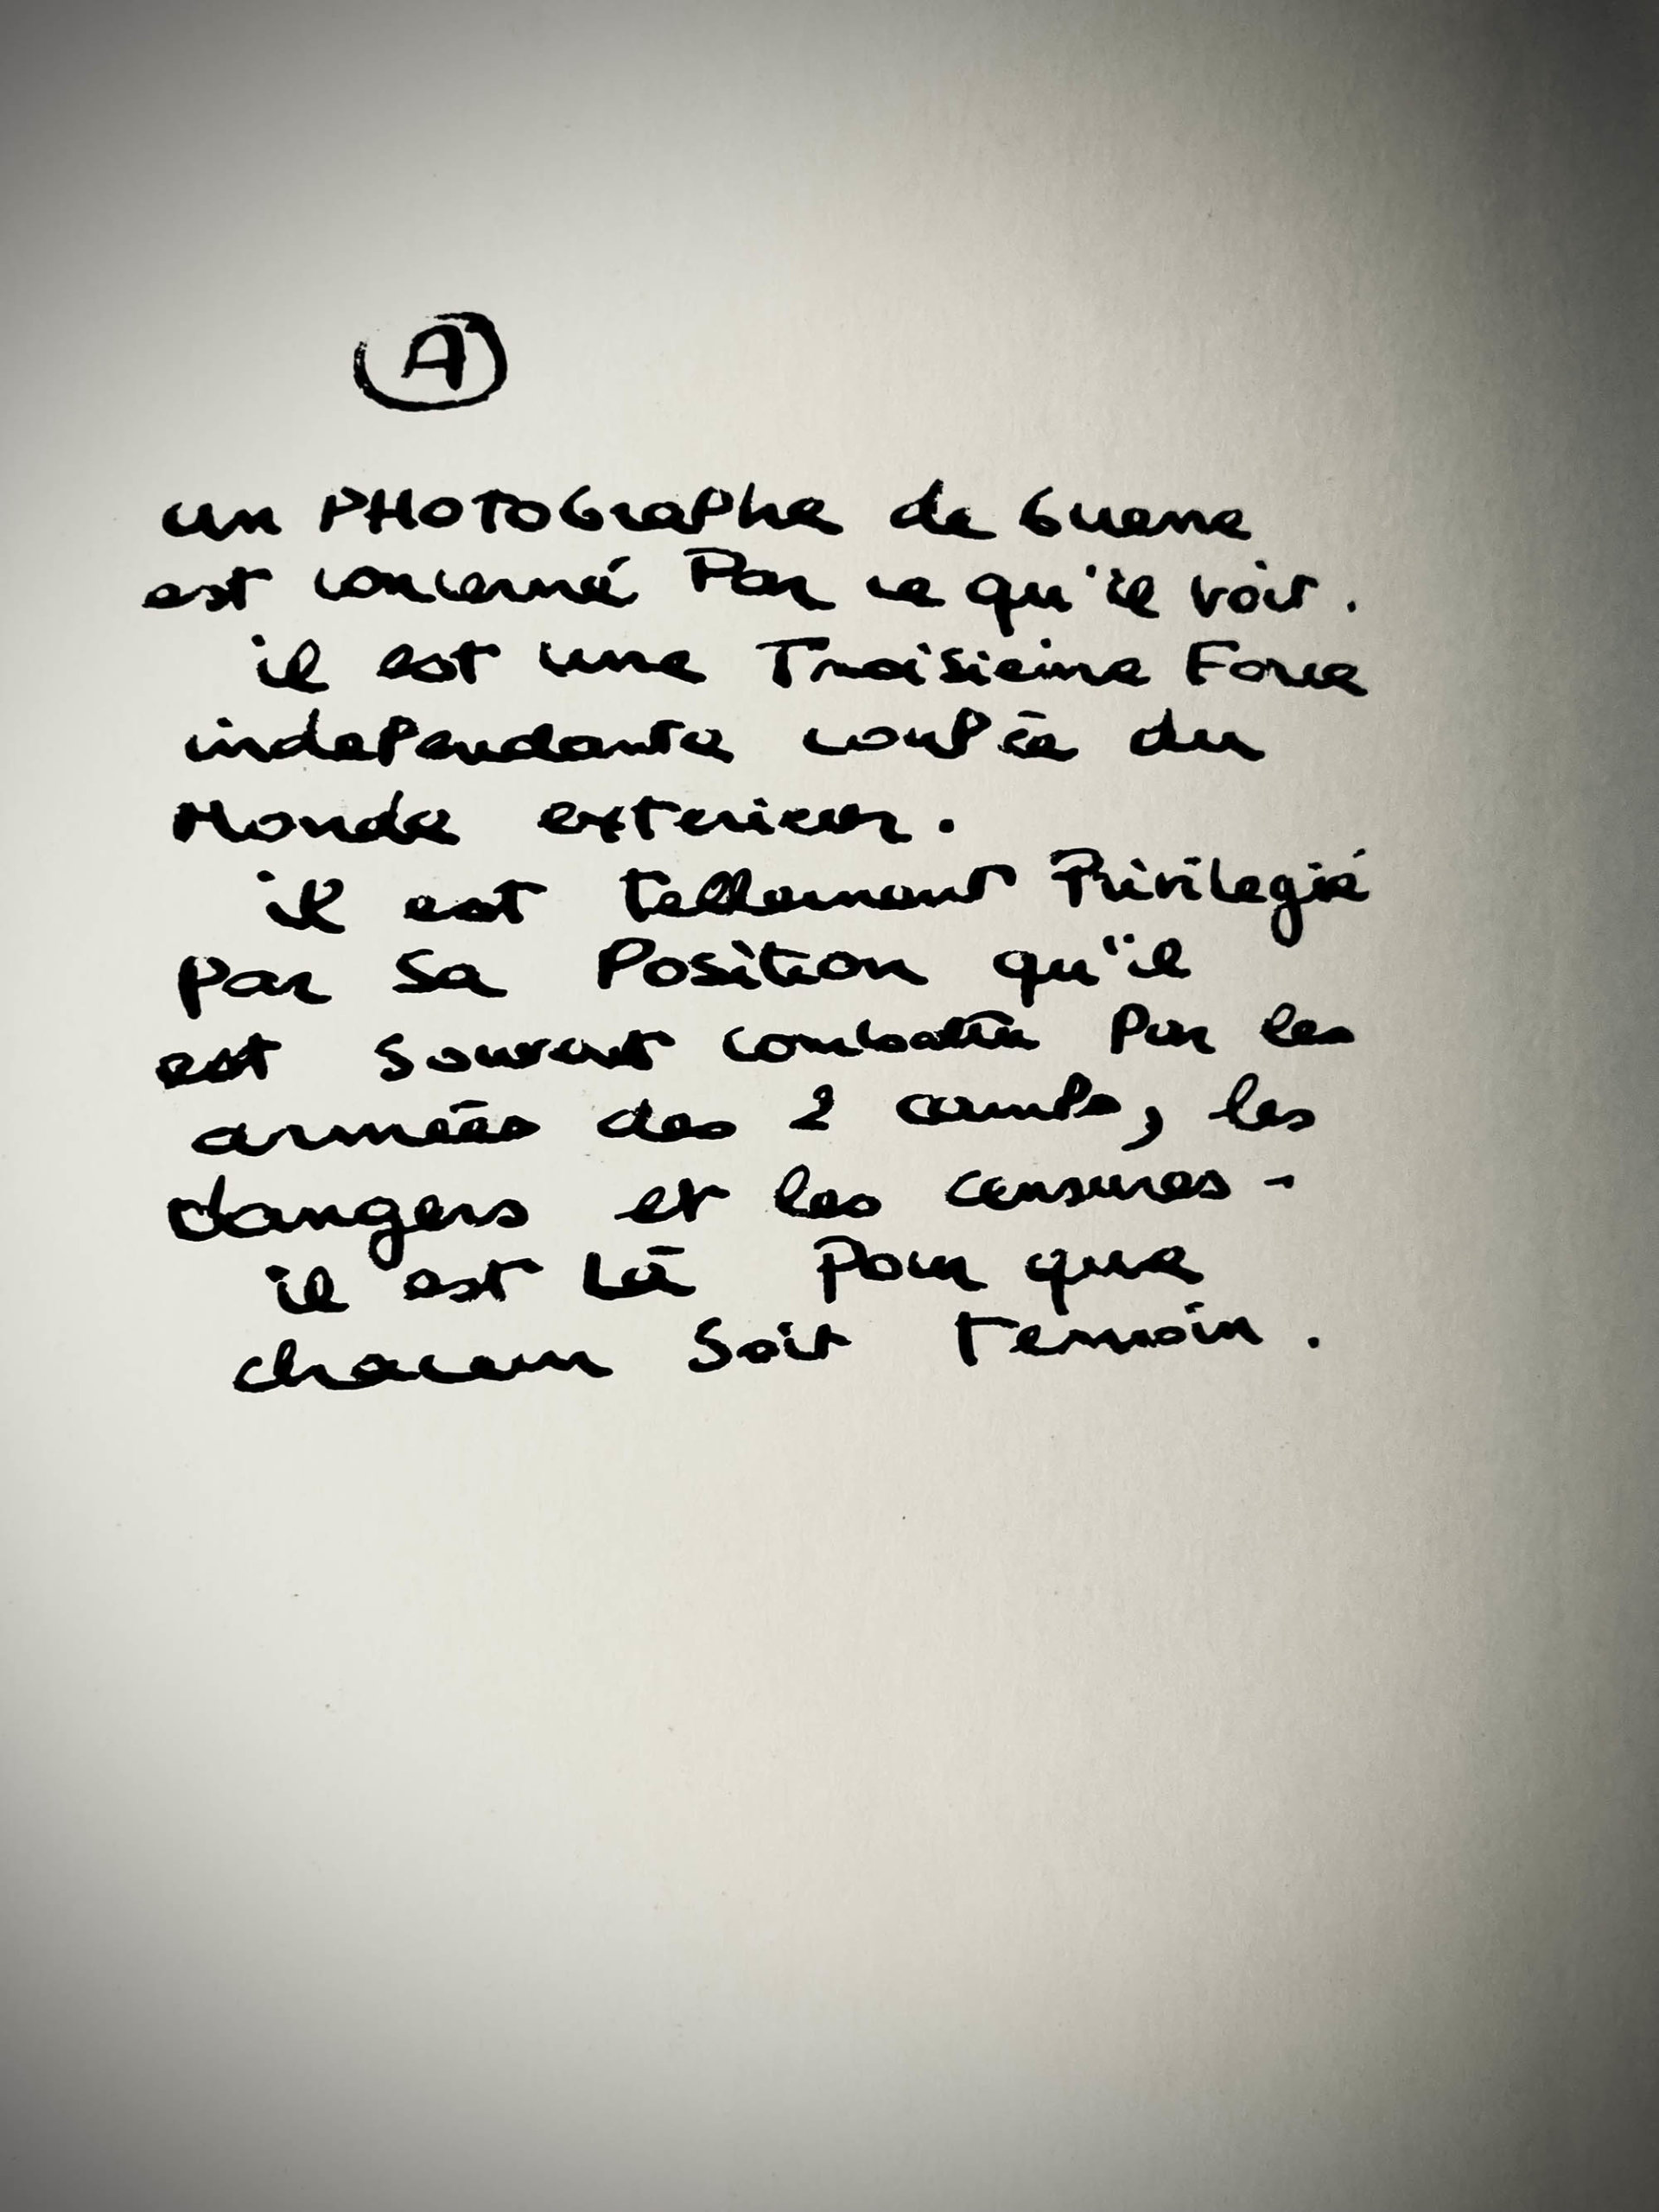 A
un PHOTOGraPhe de Guerre
est concerné Par ce qu'il voit.
il est une Troisieme Force
indePendante couPée du
Monde exterieur.
il est tellement Privilegié
par sa Position qu'il
est souvent combattu Par les
armées des 2 camps, les
dangers et les censures -
il est Là Pour que
chacun Soit Temoin.